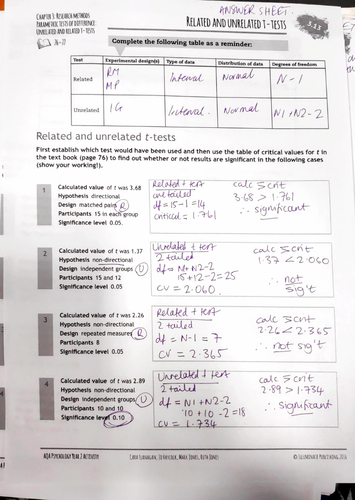 ANSWER SHEET
CHAPTER 3 RESEARCH METHODS
PARAMETRIC TESTS OF DIFFERENCE:
UNRELATED AND RELATED T-TESTS
RELATED AND UNRELATED T-TESTS
76–77
Complete the following table as a reminder:
Test Experimental design(s) Type of data Distribution of data Degrees of freedom
Related RM MP Interval Normal N-1
Unrelated IG Interval. Normal N1+N2-2
Related and unrelated t-tests
First establish which test would have been used and then use the table of critical values for t in
the text book (page 76) to find out whether or not results are significant in the following cases
(show your working!).
1
Calculated value of t was 3.68
Hypothesis directional
Design matched pairs R
Participants 15 in each group
Significance level 0.05.
Related t test
one tailed
df = 15-1 = 14
critical = 1.761
calc ≥ crit
3.68 > 1.761
∴ significant
2
Calculated value of t was 1.37
Hypothesis non-directional
Design independent groups U
Participants 15 and 12
Significance level 0.05
Unrelated t test
2 tailed
df = N+N2-2
15+12-2=25
CV = 2.060
calc ≥ crit
1.37 < 2.060
∴ not
sig't
3
Calculated value of t was 2.26
Hypothesis non-directional
Design repeated measures R
Participants 8
Significance level 0.05
Related t test
2 tailed
df = N-1 = 7
CV = 2.365
calc ≥ crit
2.26 < 2.365
∴ not sig't
4
Calculated value of t was 2.89
Hypothesis non-directional
Design independent groups U
Participants 10 and 10
Significance level 0.10
Unrelated t test
2 tailed
df = N1+N2-2
10+10-2=18
CV = 1.734
calc ≥ crit
2.89 > 1.734
∴ significant
AQA PSYCHOLOGY YEAR 2 ACTIVITY
CARA FLANAGAN, JO HAYCOCK, MARK JONES, RUTH JONES
© ILLUMINATE PUBLISHING 2016